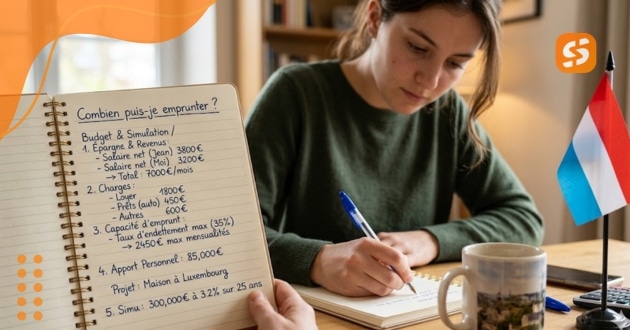 Combien puis-je emprunter ?
Budget & Simulation /
1. Épargne & Revenus:
- Salaire net (Jean) 3800€
- Salaire net (Moi) 3200€
→ Total : 7000€/mois
2. Charges:
- Loyer 1800€
- Prêts (auto) 450€
- Autres 600€
3. Capacité d'emprunt:
- Taux d'endettement max (35%)
→ 2450€ max mensualités
4. Apport Personnel: 85,000€
Projet: Maison à Luxembourg
5. Simu: 300,000€ à 3.2% sur 25 ans